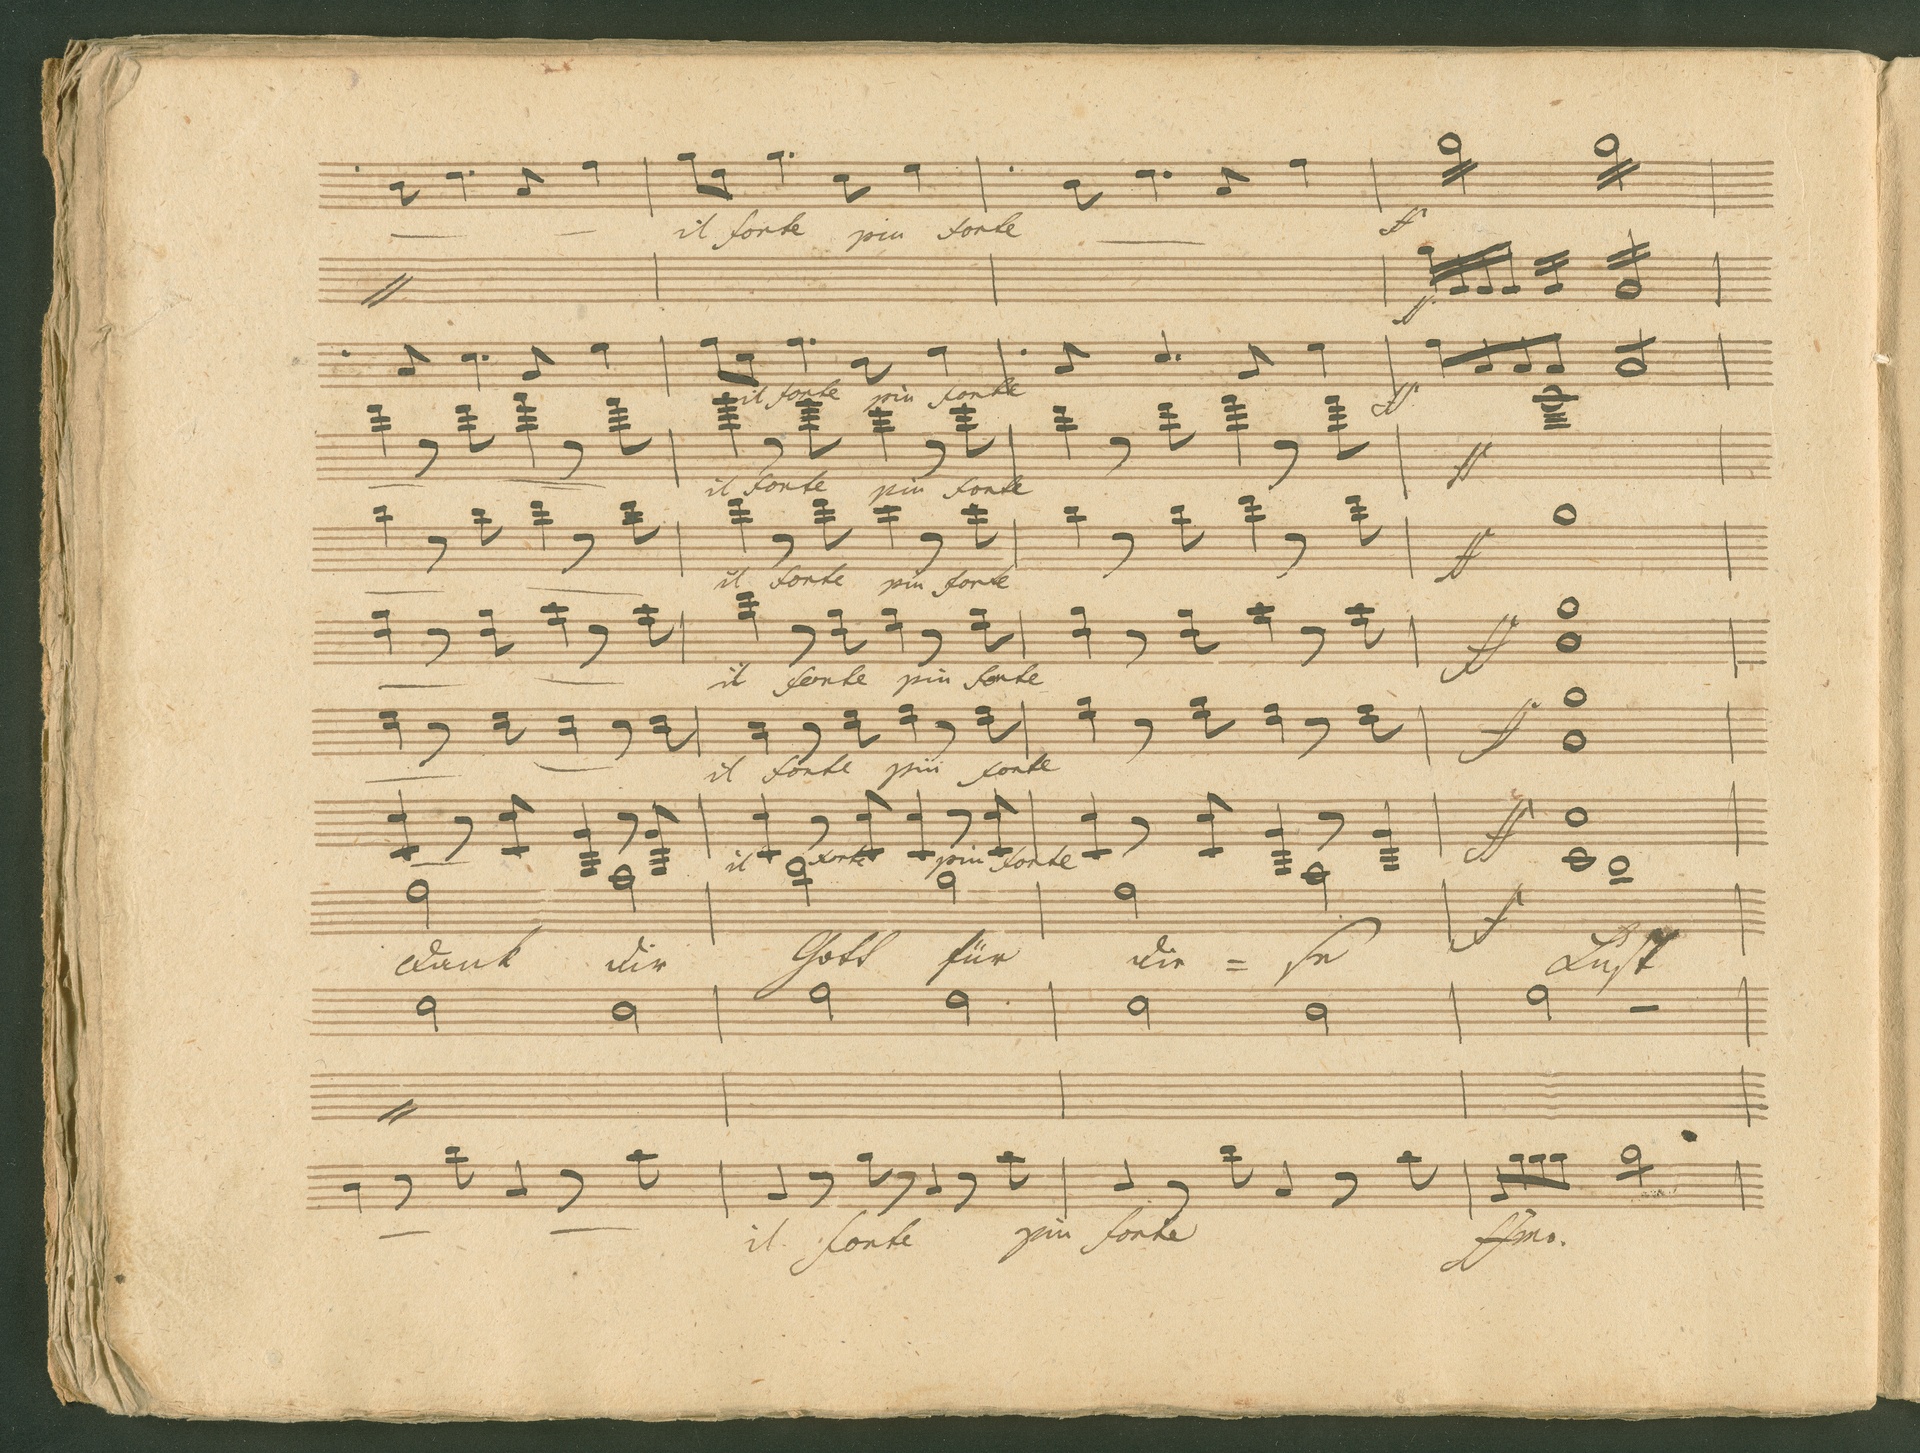 il forte piu forte ff
ff
il forte piu forte ff
il forte piu forte ff
il forte piu forte ff
il forte piu forte ff
il forte piu forte ff
il forte piu forte ff
f
Dank dir Gott für die = se Lust
il forte piu forte ffmo.